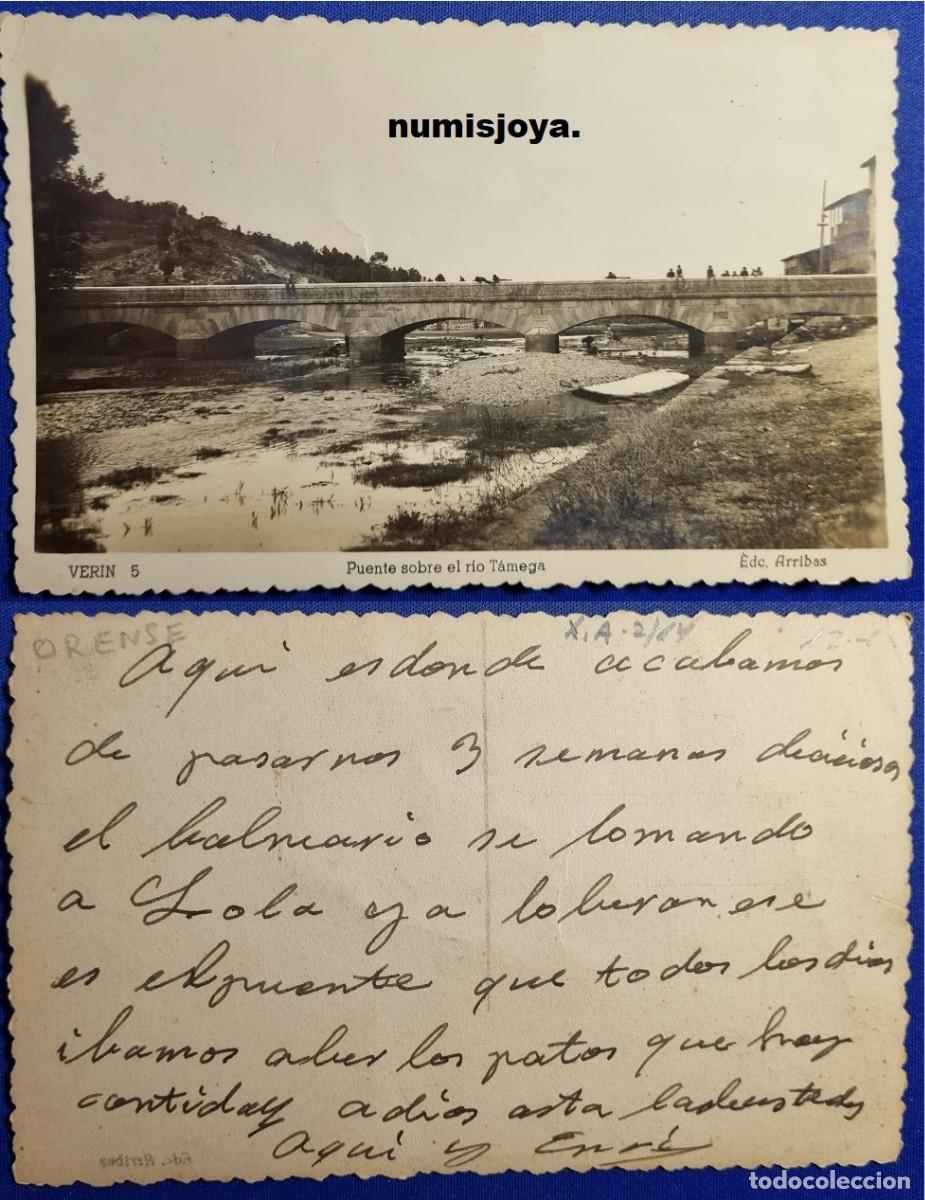 numisjoya.
VERIN 5 Puente sobre el río Támega Èdc. Arribas
ORENSE X.A-2/64
Aqui es donde acabamos
de pasarnos 3 semanas
el balneario se lo mando
a Lola ya lo beran ese
es el puente que todos los dias
ibamos aber los patos que hay
contidad adios asta
Aqui y Enri
Edc. Arribas
todocoleccion